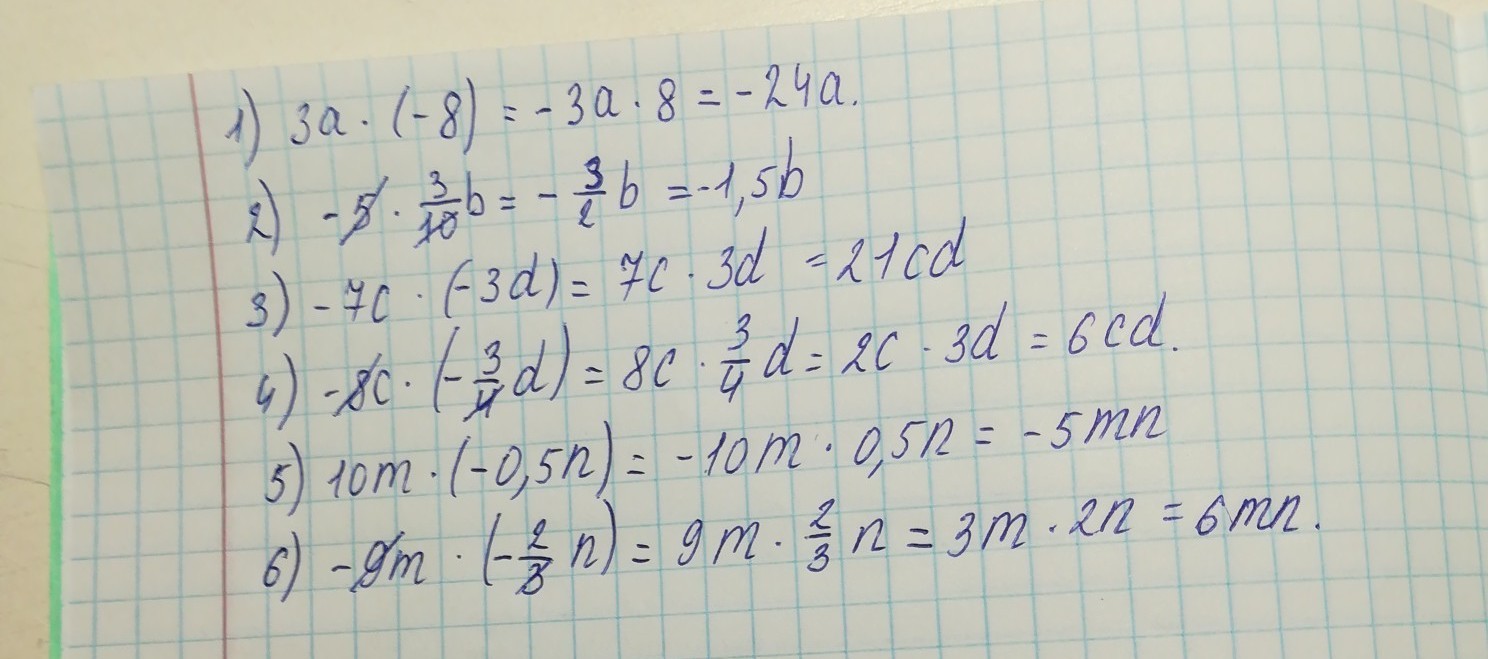 1) 3a · (-8) = -3a · 8 = -24a.
2) -5 · 3/10 b = - 3/2 b = -1,5b
3) -7c · (-3d) = 7c · 3d = 21cd
4) -8c · (- 3/4 d) = 8c · 3/4 d = 2c · 3d = 6cd.
5) 10m · (-0,5n) = -10m · 0,5n = -5mn
6) -9m · (- 2/3 n) = 9m · 2/3 n = 3m · 2n = 6mn.